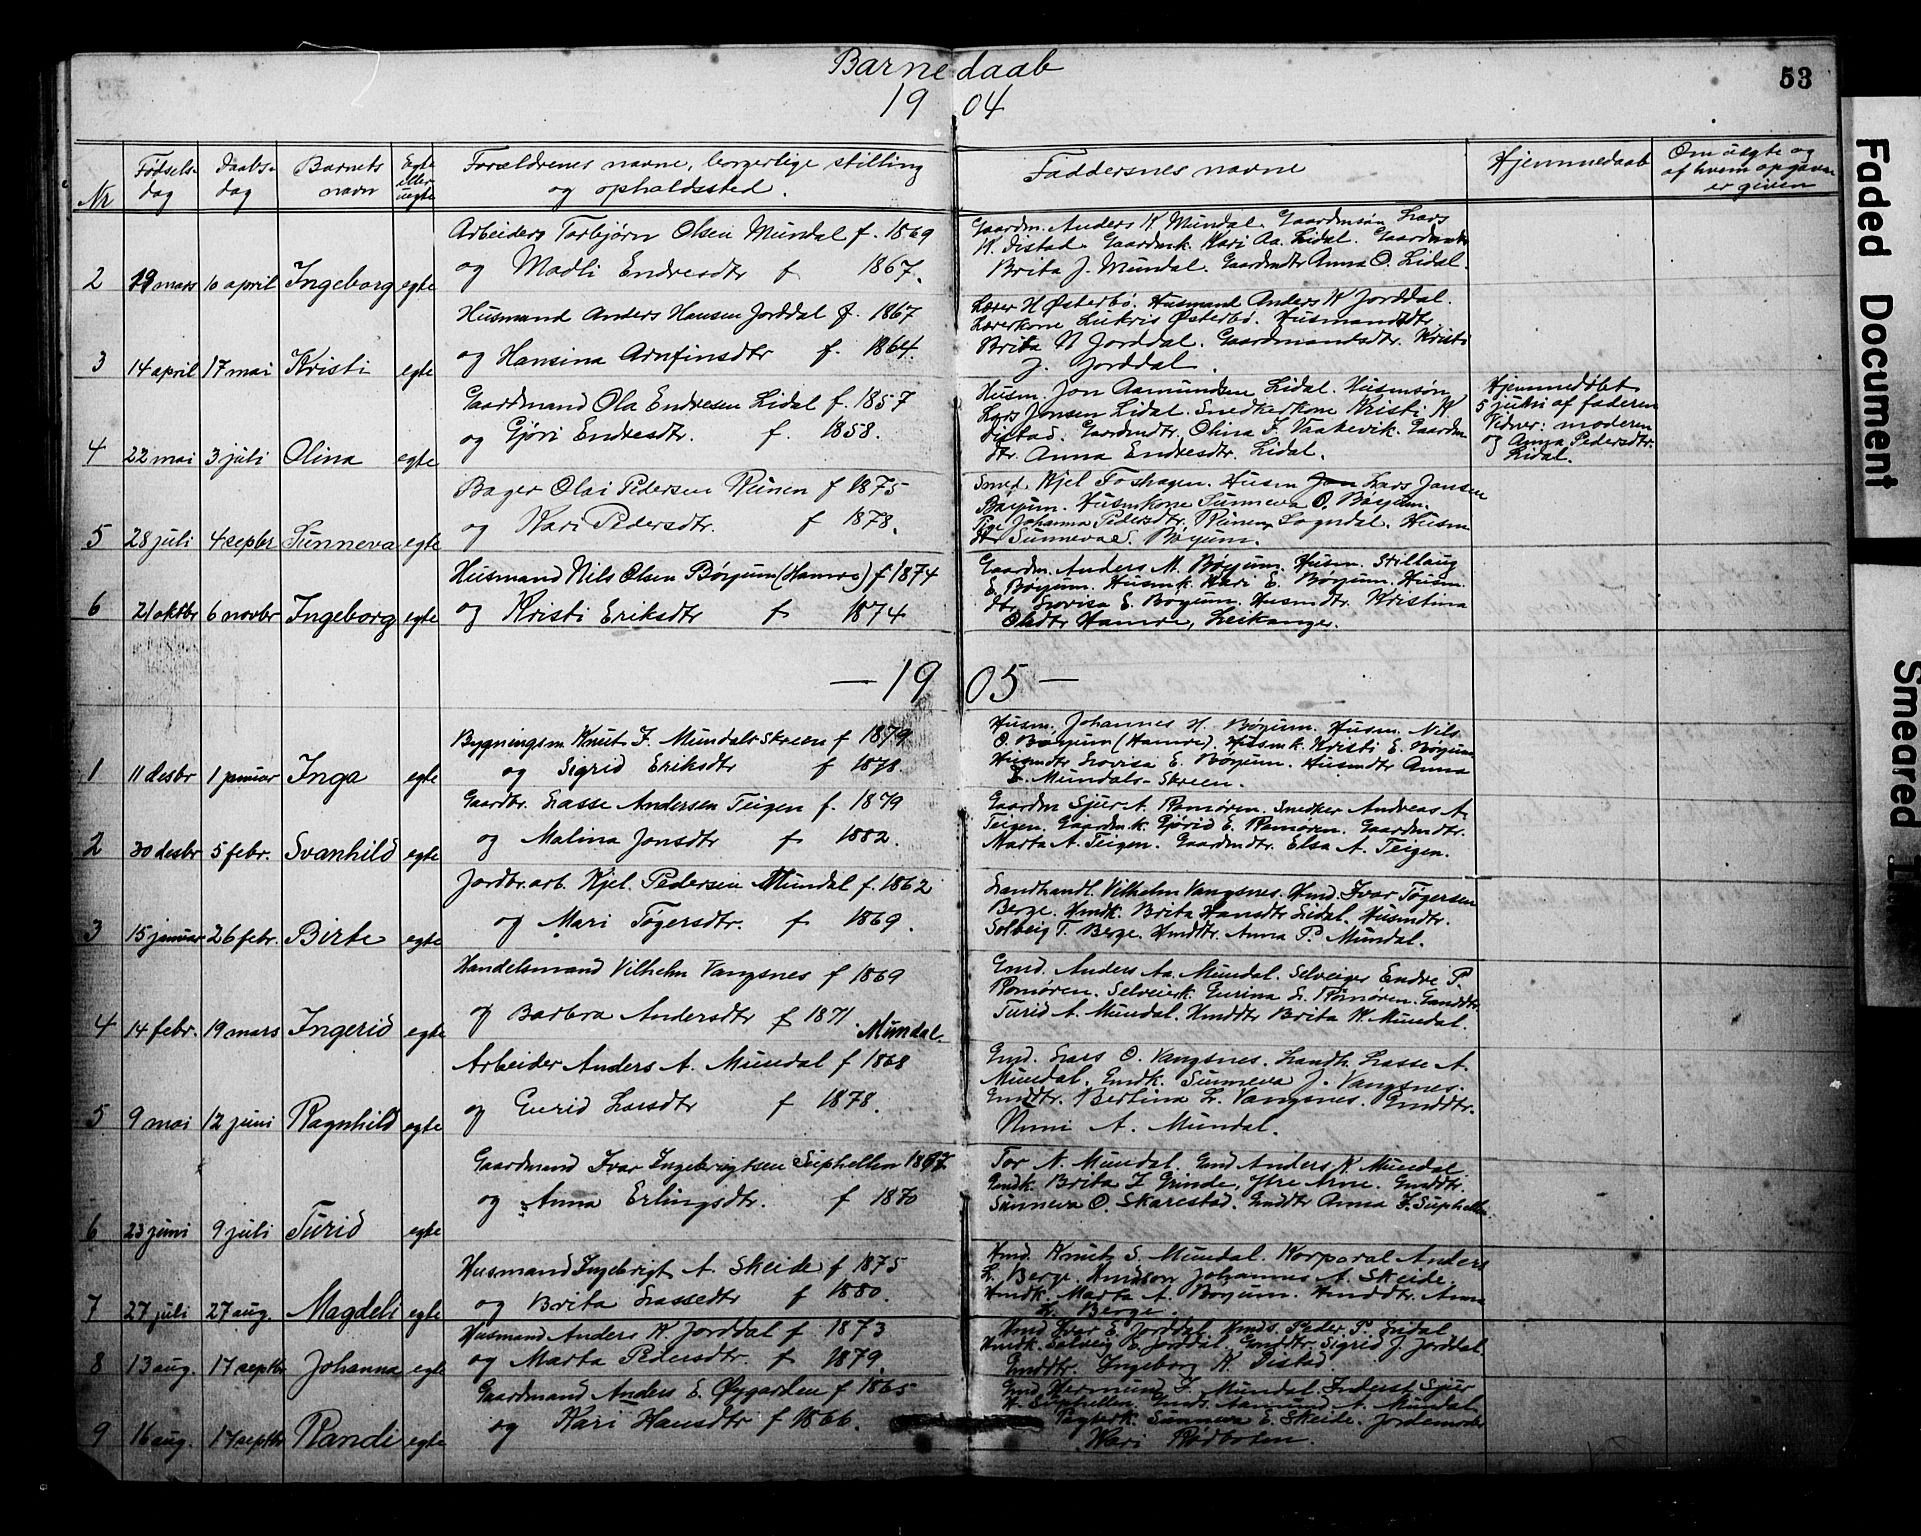 Barnedaab
53
1904
Nr
Fødsels-dag
Daabs-dag
Barnets navn
Egte eller uegte
Forældrenes navne, borgerlige stilling
og opholdssted.
Faddernes navne
Hjemmedaab
Om uegte og
af hvem opgaven
er given
2 19 mars 10 april Ingeborg egte
Arbeider Torbjørn Olsen Mundal f. 1869
og Madli Endresdtr f 1867.
Gaardm. Anders K Mundal. Gaardmsøn Lars
K. Distad. Gaardmk. Kari Aa. Lidal. Gaardmdtr
Brita J. Mundal. Gaardmdtr Anna O. Lidal.
3 14 april 17 mai Kristi egte
Husmand Anders Hansen Jorddal f. 1867
og Hansina Arnfinsdtr f. 1864.
Lærer H Østerbø. Husmand Anders K Jorddal.
Lærerkone Lukris Østerbø. Husmandsdtr
Brita N Jorddal. Gaardmandsdtr. Kristi
J. Jorddal.
4 22 mai 3 juli Olina egte
Gaardmand Ola Endresen Lidal f. 1857
og Gjöri Endresdtr. f. 1858.
Husm. Jon Aamundsen Lidal. Husmsøn
Lars Jonsen Lidal. Snedkerkone Kristi K.
Distad. Gaardmdtr. Olina J. Vaatevik. Gaardm
dtr. Anna Endresdtr. Lidal.
Hjemmedøbt
5 juni af faderen
Vidner: moderen
og Anna Pedersdtr.
Lidal.
5 28 juli 4 septbr Sunneva egte
Bager Olai Pedersen Runen f 1875
og Kari Pedersdtr. f 1878.
Smed Kjel Foshagen. Husm Jon Lars Jansen
Bøyum. Husmkone Sunneva O. Bøyum.
Pige Johanna Pedersdtr. Runen Sogndal. Husm
dtr Sunneva E. Bøyum.
6 21 oktbr 6 novbr Ingeborg egte
Husmand Nils Olsen Bøyum (Hamre) f 1874
og Kristi Eriksdtr f 1874
Gaardm. Anders M. Bøyum. Husm. Stillaug
E. Bøyum. Husmk. Kari E. Bøyum. Husm
dtr. Lovisa E. Bøyum. Husmdtr. Kristina
Olsdtr Hamre, Leikanger.
— 1905 —
1 11 desbr 1 januar Inga egte
Bygningsm Knut J. Mundals Skreen f 1879
og Sigrid Eriksdtr f 1878.
Husm. Johannes H. Bøyum. Husm. Nils
O. Bøyum (Hamre). Husmk. Kristi E. Bøyum
Husmdtr Lovisa E. Bøyum. Husmdtr Anna
L. Mundals-Skreen.
2 30 desbr 5 febr. Svanhild egte
Gaardbr. Lasse Andersen Teigen f. 1879
og Malina Jonsdtr f 1882.
Gaardm Sjur A. Romøren. Snedker Andreas A.
Teigen. Gaardmk. Gjørid E. Romøren. Gaardmdtr.
Marta A. Teigen. Gaardmdtr. Elsa A. Teigen.
3 15 januar 26 febr. Birte egte
Jordbr.arb. Kjel Pedersen Mundal f. 1862
og Mari Tøgersdtr. f 1869.
Landhandl. Vilhelm Vangsnes. Hmd. Ivar Tøgersen
Berge. Hmdk. Brita Hansdtr Lidal. Husmdtr.
Solveig T. Berge. Hmddtr. Anna P. Mundal.
4 14 febr. 19 mars Ingerid egte
Handelsmand Vilhelm Vangsnes f 1869
og Barbra Andersdtr f 1871 Mundal.
Gmd. Anders Aa. Mundal. Selveier Endre P.
Romøren. Selveierk Gurina L. Romøren. Gmddtr.
Turid A. Mundal. Hmddtr Brita K. Mundal.
5 9 mai 12 juni Ragnhild egte
Arbeider Anders A. Mundal f 1868
og Gurid Larsdtr f 1878.
Gmd. Lars O. Vangsnes. Landh. Lasse A.
Mundal. Gmdk. Sunneva J. Vangsnes.
Gmddtr. Bertina L. Vangsnes. Gmddtr.
Unni A. Mundal.
6 23 juni 9 juli Turid egte
Gaardmand Ivar Ingebrigtsen Suphellen 1867
og Anna Erlingsdtr. f 1870
Tor N. Mundal. Gmd Anders K. Mundal
Gmdk. Brita J Grinde, Ytre Arne. Gmddtr
Sunneva O. Skarestad. Gmddtr Anna J. Suphellen.
7 27 juli 27 aug. Magdeli egte
Husmand Ingebrigt A. Skeide f 1875
og Brita Lassedtr f 1880.
Hmd. Knut S. Mundal. Korporal Anders
L. Berge. Hmdsøn Johannes A. Skeide.
Hmdk. Marta A. Bøyum. Hmddtr. Anna
L. Berge.
8 13 aug. 17 septbr Johanna egte
Husmand Anders K. Jorddal f 1873
og Marta Pedersdtr. f 1879.
Hmd Ivar E. Jorddal. Hmds. Peder P. Lidal
Hmdk. Solveig E. Jorddal. Gmddtr. Sigrid J. Jorddal
Gmddtr. Ingeborg K. Distad
9 16 aug. 17 septbr Randi egte
Gaardmand Anders E. Øygarden f 1865
og Kari Hansdtr f 1866.
Gmd Hermund J. Mundal. Inderst Sjur
H. Suphellen. Gmds. Aamund A. Mundal
Sunneva E. Skeide. Jordemoder
Kari Rødbotten.
Faded Document
Smeared